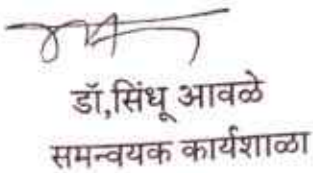 डॉ,सिंधू आवळे
समन्वयक कार्यशाळा